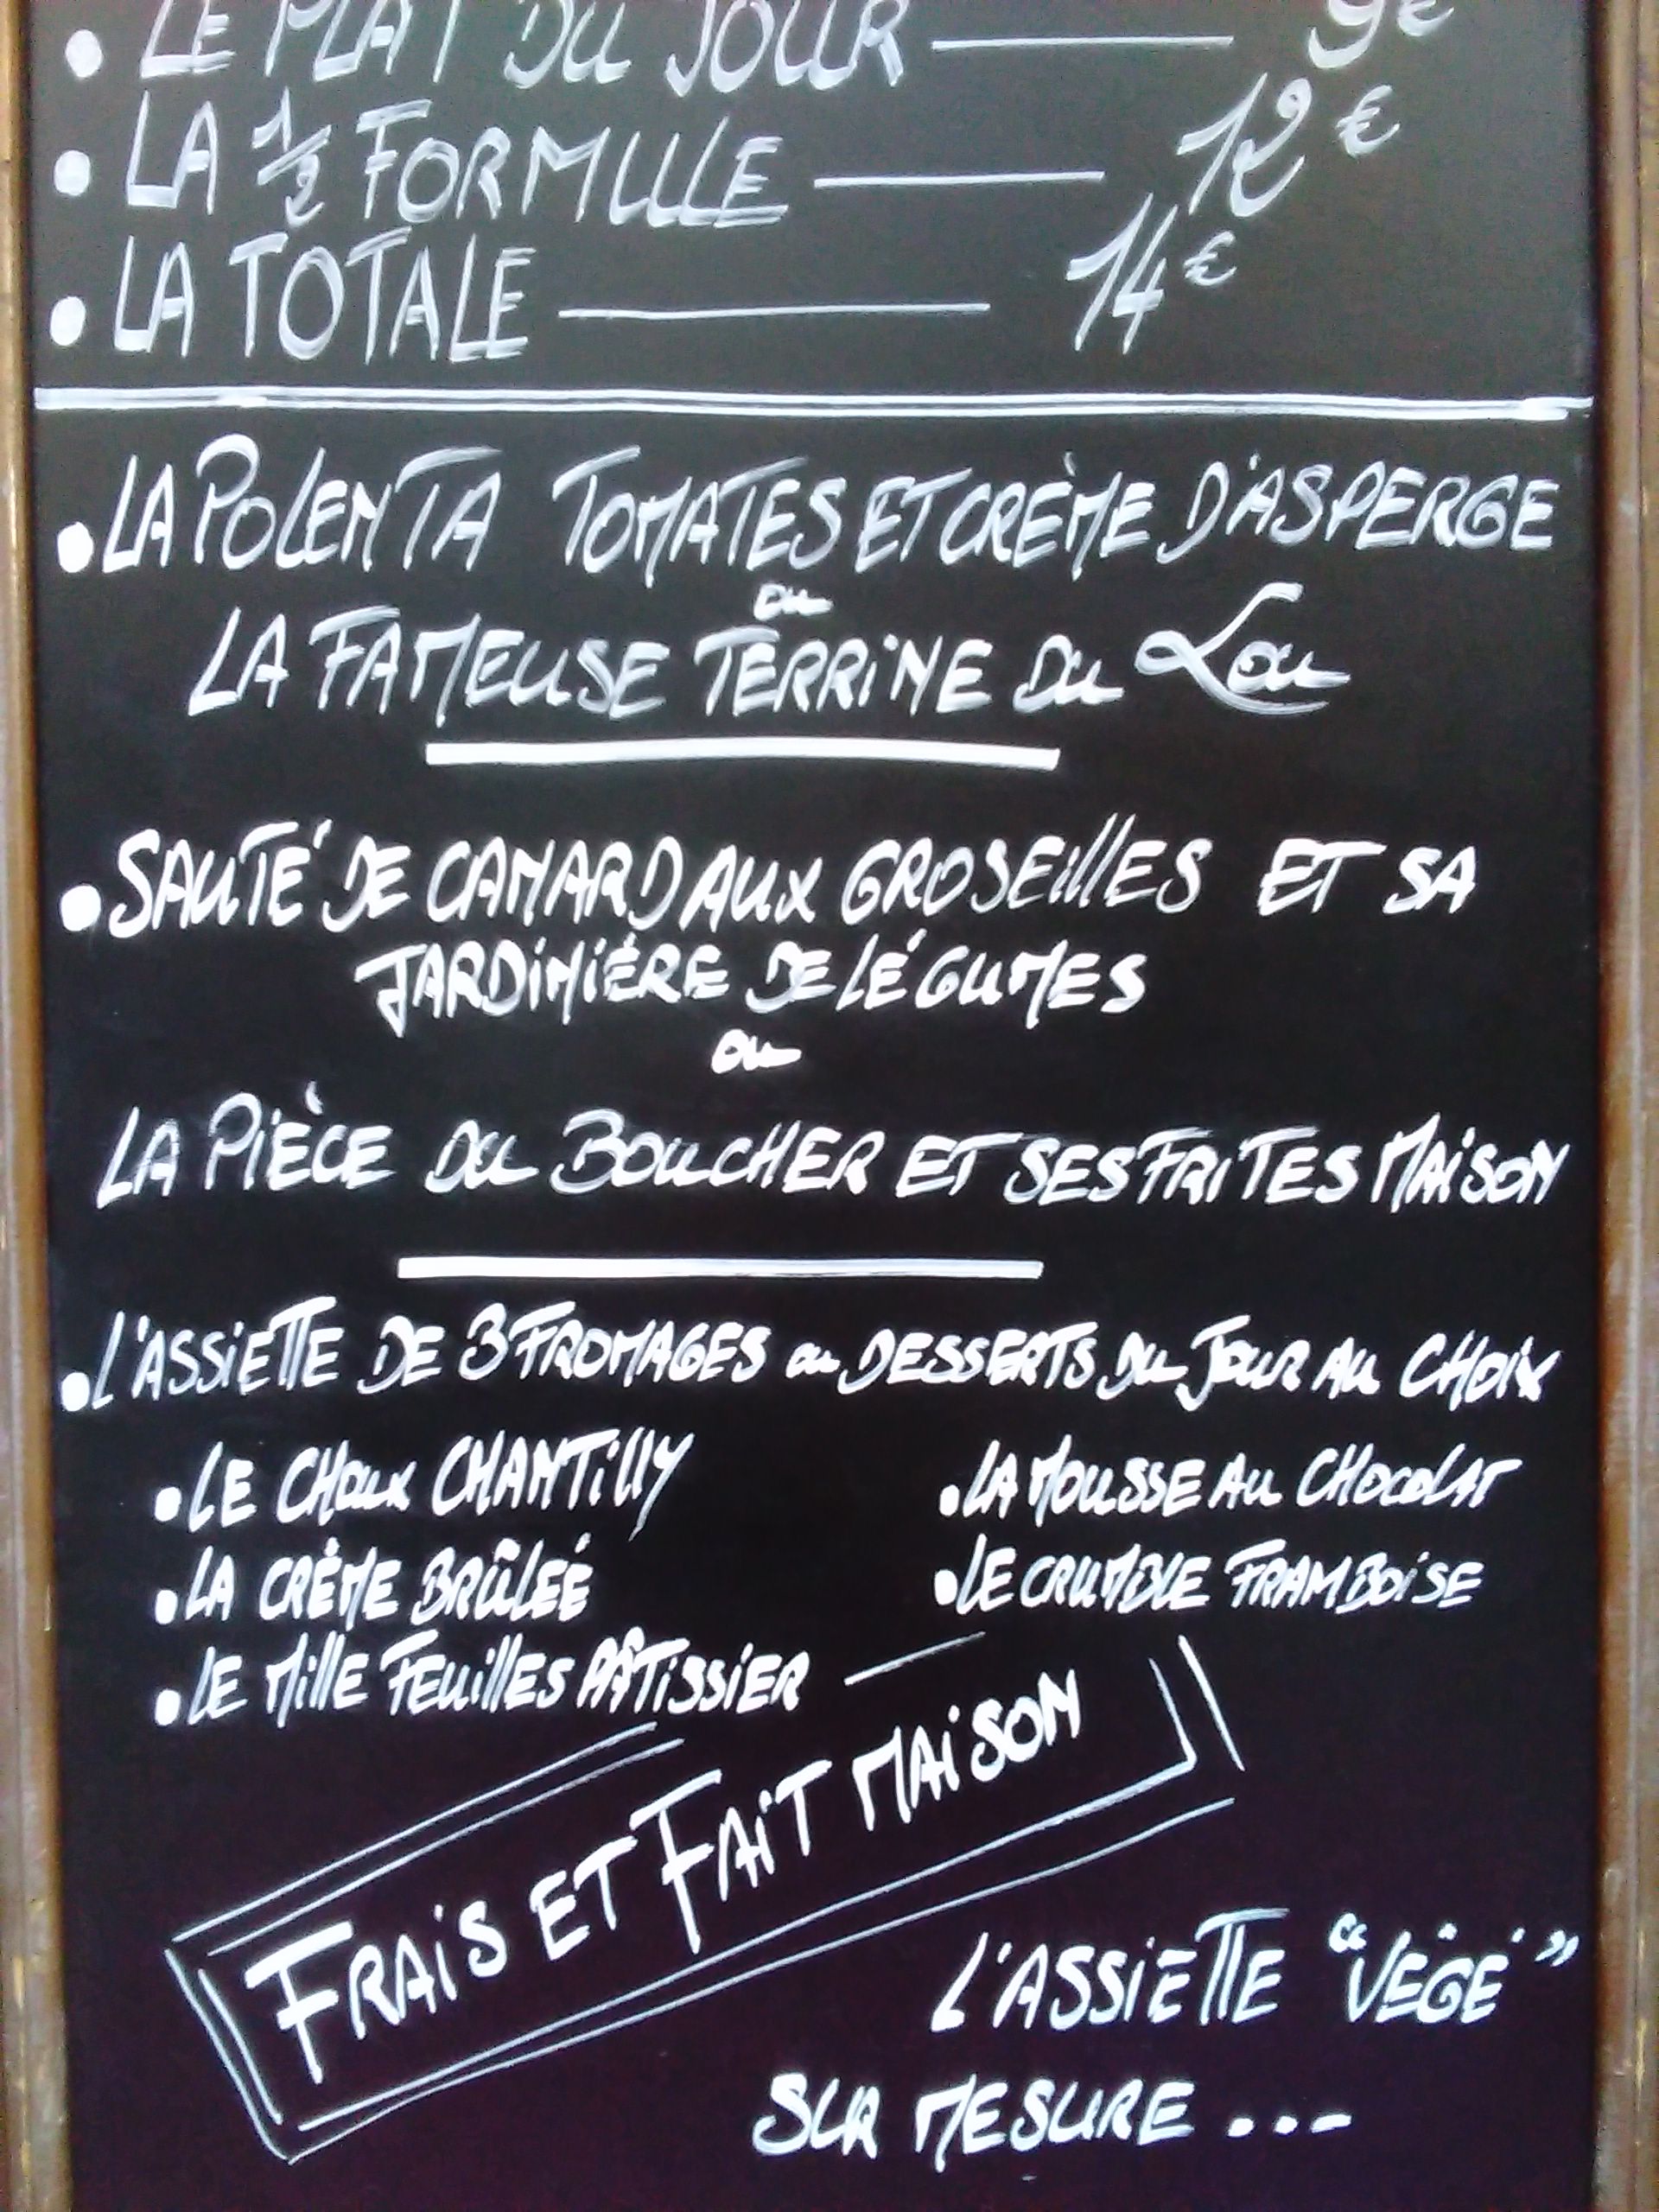 • LE PLAT DU JOUR — 9€
• LA 1/2 FORMULE — 12€
• LA TOTALE — 14€
• LA POLENTA TOMATES ET CRÈME D'ASPERGE
ou
LA FAMEUSE TERRINE DU Lou
• SAUTÉ DE CANARD AUX GROSEILLES ET SA
JARDINIÉRE DE LÉGUMES
ou
LA PIÈCE DU BOUCHER ET SES FRITES MAISON
• L'ASSIETTE DE 3 FROMAGES ou DESSERTS DU JOUR AU CHOIX
• LE CHOUX CHANTILLY
• LA MOUSSE AU CHOCOLAT
• LA CRÈME BRÛLEÉ
• LE CRUMBLE FRAMBOISE
• LE MILLE FEUILLES PÂTISSIER
FRAIS ET FAIT MAISON
L'ASSIETTE "VÉGÉ"
SUR MESURE...